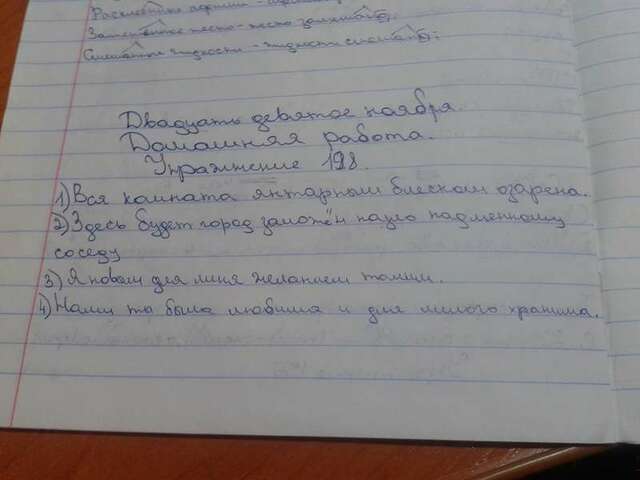 Расклеенные афиши -
Замешенное тесто - тесто замешано;
Смешанные жидкости - жидкости смешаны;
Двадцать девятое ноября.
Домашняя работа.
Упражнение 198.
1) Вся комната янтарным блеском озарена.
2) Здесь будет город заложён назло надменному
соседу
3) Я новым для меня желанием томим.
4) Нами ты была любима и для милого хранима.